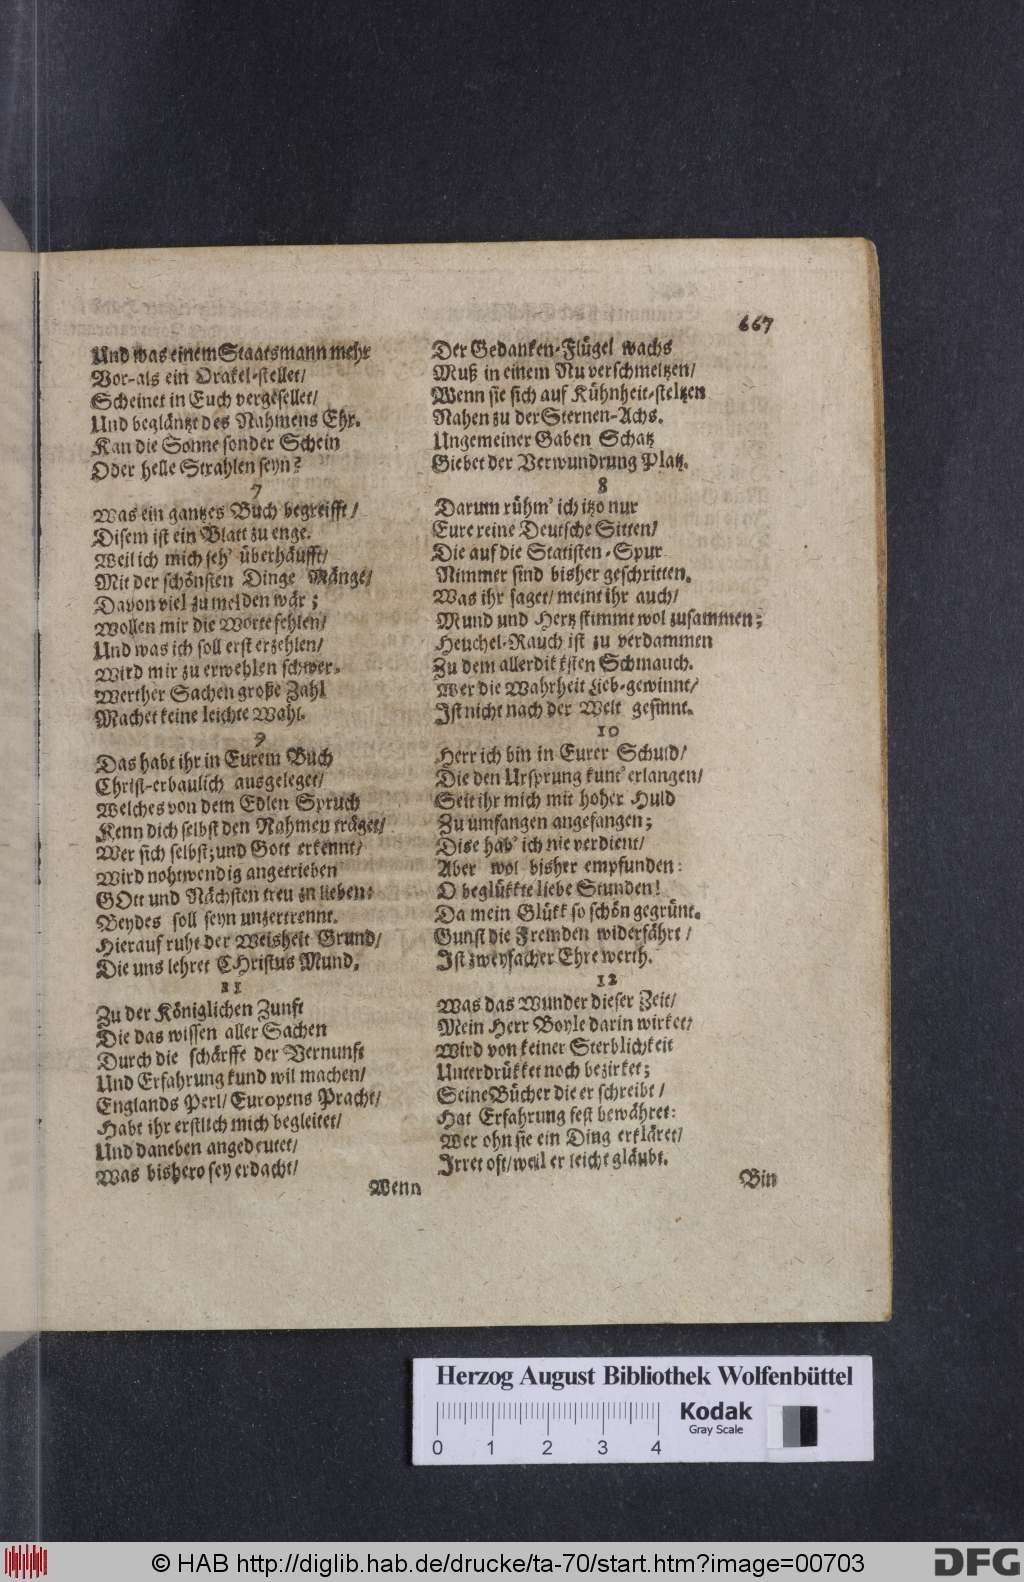 667
Und was einem Staatsmann mehr
Vor-als ein Orakel-stellet/
Scheinet in Euch vergesellet/
Und begläntzt des Nahmens Ehr.
Kan die Sonne sonder Schein
Oder helle Strahlen seyn?
Der Gedanken-Flügel wachs
Muß in einem Nu verschmeltzen/
Wenn sie sich auf Kühnheit-steltzen
Nahen zu der Sternen-Achs.
Ungemeiner Gaben Schatz
Giebet der Verwundrung Platz.
7
Was ein gantzes Buch begreifft/
Disem ist ein Blatt zu enge.
Weil ich mich seh' überhäufft/
Mit der schönsten Dinge Mänge/
Davon viel zu melden wär;
Wollen mir die Worte fehlen/
Und was ich soll erst erzehlen/
Wird mir zu erwehlen schwer.
Werther Sachen große Zahl
Machet keine leichte Wahl.
8
Darum rühm' ich itzo nur
Eure reine Deutsche Sitten/
Die auf die Statisten-Spur
Nimmer sind bisher geschritten.
Was ihr saget/ meint ihr auch/
Mund und Hertz stimmt wol zusammen;
Heuchel-Rauch ist zu verdammen
Zu dem allerdikksten Schmauch.
Wer die Wahrheit Lieb-gewinnt/
Ist nicht nach der Welt gesinnt.
9
Das habt ihr in Eurem Buch
Christ-erbaulich ausgeleget/
Welches von dem Edlen Spruch
Kenn dich selbst den Nahmen träget/
Wer sich selbst; und Gott erkennt/
Wird nohtwendig angetrieben
GOtt und Nächsten treu zu lieben:
Beydes soll seyn unzertrennt.
Hierauf ruht der Weisheit Grund/
Die uns lehret CHristus Mund.
10
Herr ich bin in Eurer Schuld/
Die den Ursprung kunt' erlangen/
Seit ihr mich mit hoher Huld
Zu umfangen angefangen;
Dise hab' ich nie verdient/
Aber wol bisher empfunden:
O beglükkte liebe Stunden!
Da mein Glükk so schön gegrünt.
Gunst die Fremden widerfährt/
Ist zweyfacher Ehre werth.
11
Zu der Königlichen Zunft
Die das wissen aller Sachen
Durch die schärffe der Vernunft
Und Erfahrung kund wil machen/
Englands Perl/ Europens Pracht/
Habt ihr erstlich mich begleitet/
Und daneben angedeutet/
Was bishero sey erdacht/
Wenn
12
Was das Wunder dieser Zeit/
Mein Herr Boyle darin wirket/
Wird von keiner Sterblichkeit
Unterdrükket noch bezirket;
Seine Bücher die er schreibt/
Hat Erfahrung fest bewähret:
Wer ohn sie ein Ding erkläret/
Irret oft/ weil er leicht gläubt.
Bin
Herzog August Bibliothek Wolfenbüttel
Kodak
Gray Scale
0 1 2 3 4
© HAB http://diglib.hab.de/drucke/ta-70/start.htm?image=00703
DFG